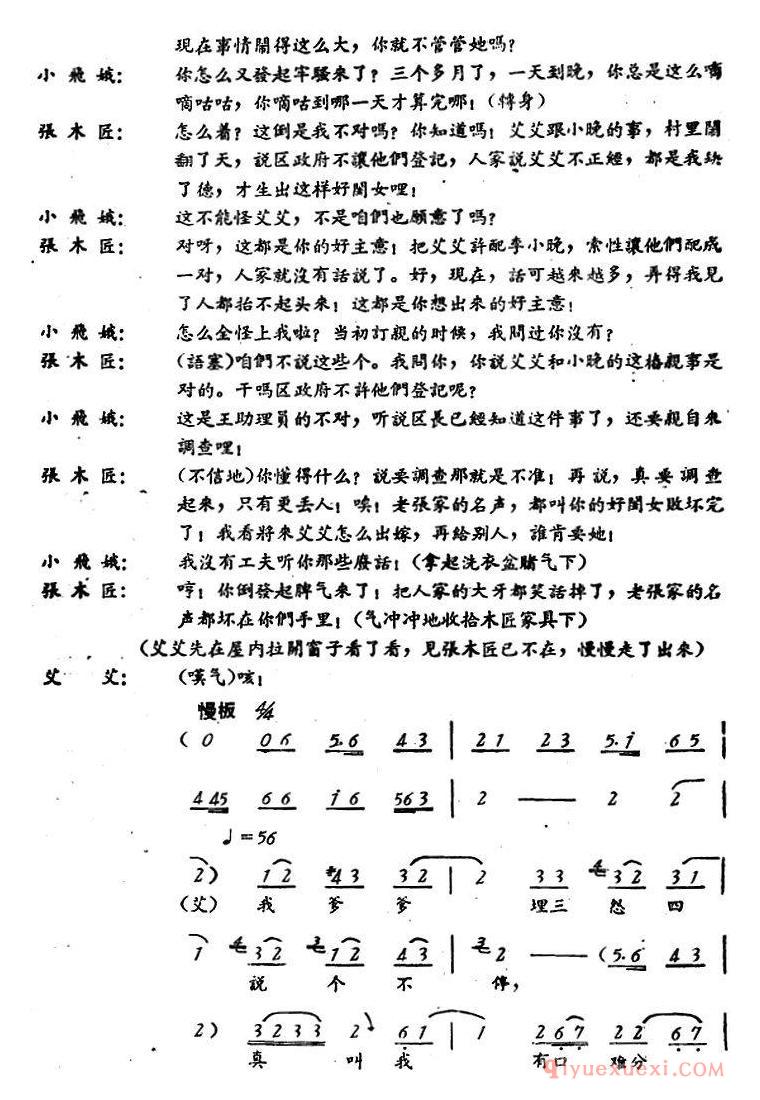 现在事情鬧得这么大，你就不管管她嗎？
小飛娥：你怎么又發起牢騷来了？三个多月了，一天到晚，你总是这么嘀
嘀咕咕，你嘀咕到哪一天才算完哪！（轉身）
張木匠：怎么着？这倒是我不对嗎？你知道嗎！艾艾跟小晚的事，村里鬧
翻了天，說区政府不讓他們登記，人家說艾艾不正經，都是我缺
了德，才生出这样好閨女哩！
小飛娥：这不能怪艾艾，不是咱們也願意了嗎？
張木匠：对呀，这都是你的好主意！把艾艾許配李小晚，索性讓他們配成
一对，人家就沒有話說了。好，现在，話可越来越多，弄得我見
了人都抬不起头来！这都是你想出来的好主意！
小飛娥：怎么全怪上我啦？当初訂親的时候，我問过你沒有？
張木匠：（語塞）咱們不說这些个。我問你，你說艾艾和小晚的这樁親事是
对的。干嗎区政府不許他們登記呢？
小飛娥：这是王助理員的不对，听說区長已經知道这件事了，还要親自来
調查哩！
張木匠：（不信地）你懂得什么？說要調查那就是不准！再說，真要調查
起来，只有更丢人！唉！老張家的名声，都叫你的好閨女敗坏完
了！我看將来艾艾怎么出嫁，再給別人，誰肯要她！
小飛娥：我沒有工夫听你那些廢話！（拿起洗衣盆賭气下）
張木匠：哼！你倒發起脾气来了！把人家的大牙都笑話掉了，老張家的名
声都坏在你們手里！（气冲冲地收拾木匠家具下）
（艾艾先在屋内拉開窗子看了看，見張木匠已不在，慢慢走了出来）
艾艾：（嘆气）咳！
慢板 4/4
（0 06 5.6 43 | 21 23 5.i 65 |
445 66 i6 563 | 2 — 2 2 |
♩=56
2） 12 #43 32 | 2 33 32 31 |
（艾）我 爹 爹 埋三 怨 四
1 32 12 43 | 2 — （5.6 43 |
說 个 不 停，
2） 3233 2 61 | 1 267 22 67 |
真 叫 我 有口 难分
qiyuexuexi.com